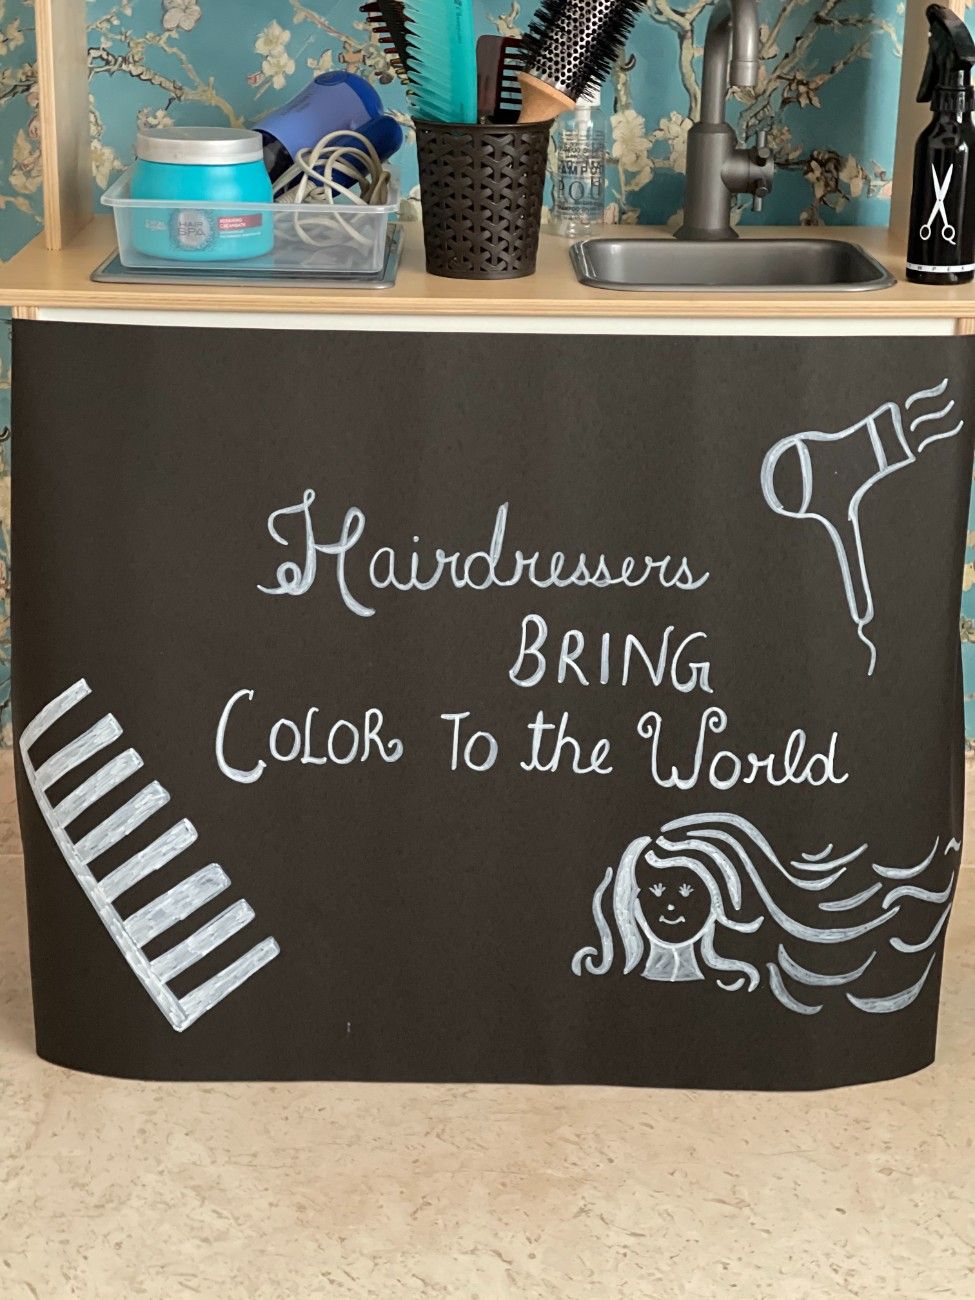 HAIR
SPA
REPAIRING
CREAMBATH
Hairdressers
BRING
COLOR TO the World